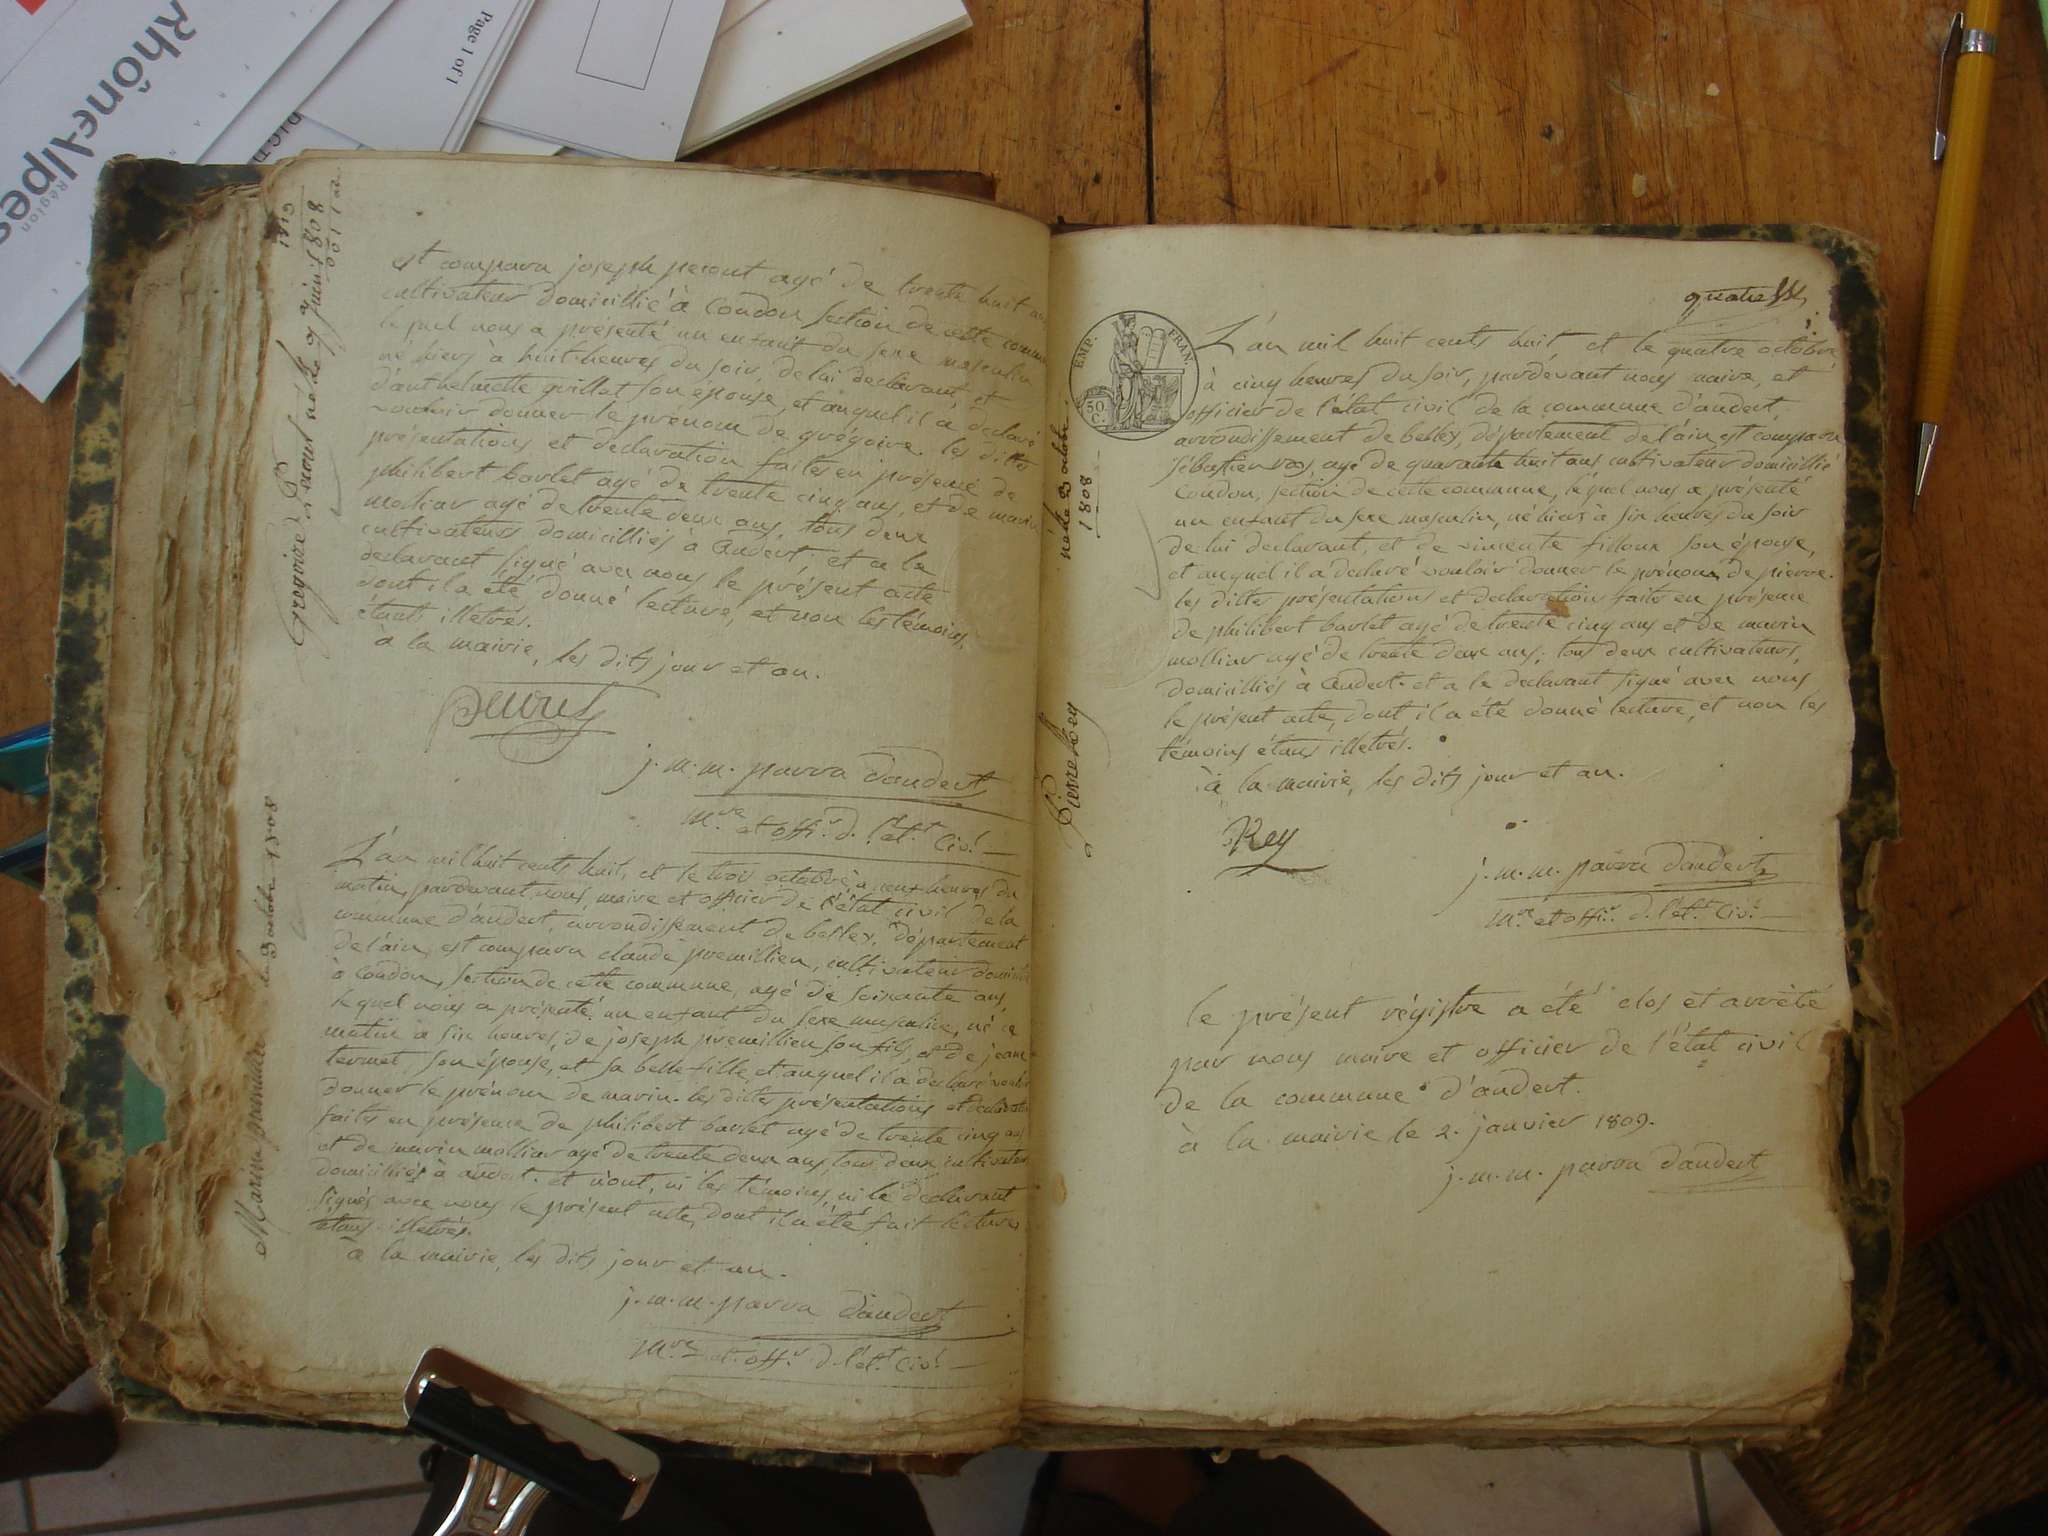 Rhône-Alpes
Région
Page 1 of 1
Gregoire né le 9 juin 1808
est comparu joseph peront agé de trente huit ans
cultivateur domicillié à Condon section de cette commune
lequel nous a présenté un enfant du sexe masculin
né hiers à huit heures du soir, de lui declarant, et
d'anthelmette son épouse, et auquel il a declaré
vouloir donner le prénom de grégoire. les dittes
présentations et declaration faites en présence de
philibert barlet agé de trente cinq ans, et de marin
molliar agé de trente deux ans, tous deux
cultivateurs domicilliés à Andert. et a le
declarant signé avec nous le présent acte
dont il a été donné lecture, et non les témoins,
étants illetrés.
à la mairie, les dits jour et an.
j. m. m. parra d'andert
m.re et offi.r d. l'ét.t civ.l
Marin premillieu le 3 octobre 1808
L'an mil huit cents huit, et le trois octobre, à neuf heures du
matin, pardevant nous, maire et officier de l'état civil de la
commune d'andert, arrondissement de belley, département
de l'ain, est comparu claude premillieu, cultivateur domicilié
à Condon, section de cette commune, agé de soixante ans,
lequel nous a présenté un enfant du sexe masculin, né ce
matin à six heures, de joseph premillieu son fils, et de jeanne
termet son épouse, et sa belle fille, et auquel il a declaré vouloir
donner le prénom de marin. les dittes présentations et declaration
faites en présence de philibert barlet agé de trente cinq ans
et de marin molliar agé de trente deux ans, tous deux cultivateurs
domicilliés à andert. et n'ont, ni les témoins, ni le declarant
signés avec nous le présent acte, dont il a été fait lecture
étans illetrés.
à la mairie, les dits jour et an.
j. m. m. parra d'andert
m.re et off.r d. l'ét.t civ.l
quatre
EMP. FRAN.
50 C.
Pierre Rey né le 3 octobre 1808
L'an mil huit cents huit, et le quatre octobre,
à cinq heures du soir, pardevant nous maire, et
officier de l'état civil de la commune d'andert,
arrondissement de belley, département de l'ain, est comparu
sébastien rey, agé de quarante huit ans cultivateur domicillié
Condon, section de cette commune, lequel nous a présenté
un enfant du sexe masculin, né hiers à six heures du soir
de lui declarant, et de vincente filloux son épouse,
et auquel il a declaré vouloir donner le prénom de pierre.
les dittes présentations et declaration faites en présence
de philibert barlet agé de trente cinq ans et de marin
molliar agé de trente deux ans, tous deux cultivateurs,
domicilliés à Andert. et a le declarant signé avec nous
le présent acte, dont il a été donné lecture, et non les
témoins étans illetrés.
à la mairie, les dits jour et an.
Rey
j. m. m. parra d'andert
m.re et offi.r d. l'ét.t civ.l
le présent régistre a été clos et arrêté
par nous maire et officier de l'état civil
de la commune d'andert.
à la mairie le 2. janvier 1809.
j. m. m. parra d'andert